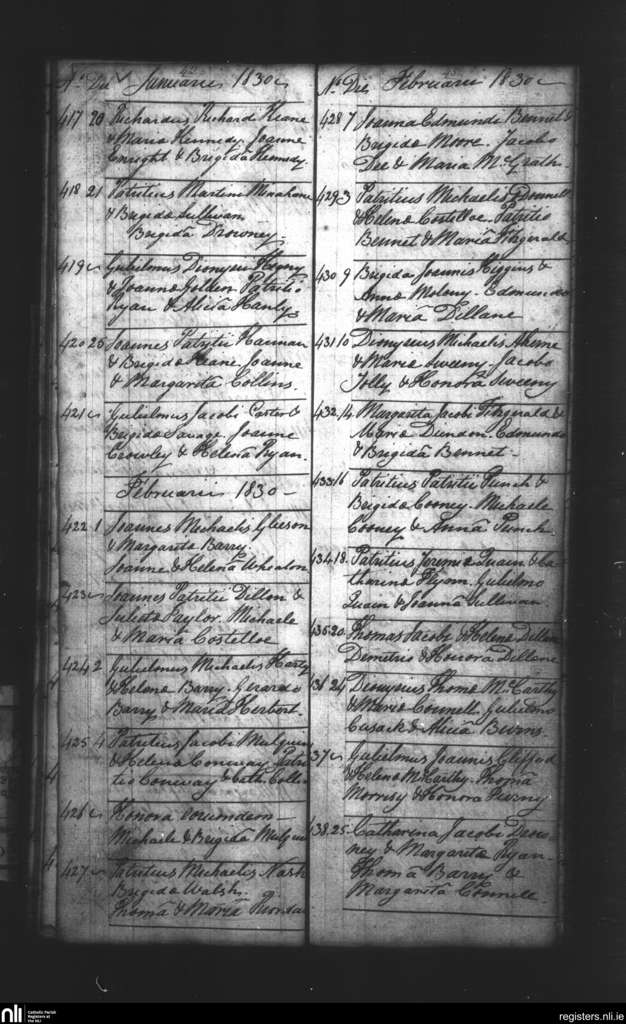 No. Die Januarii 1830
417 20 Richardus Richard Keane
& Maria Kennedy. Joanne
Enright & Brigida Kennedy
418 21 Patritius Martini Minahane
& Brigida Sullivan
Brigida Downey
419 Gulielmus Dionysii
& Joanna Patritio
Ryan & Alicia Hanly
420 25 Joannes Patritii Hannan
& Brigida Keane, Joanne
& Margarita Collins.
421 Gulielmus Jacobi Carter &
Brigida Savage, Joanne
Crowley & Helena Ryan.
Februarii 1830
422 1 Joannes Michaelis Gleeson
& Margarita Barry.
Joanne & Helena Whealon
423 Joannes Patritii Dillon &
Julieta Taylor. Michaele
& Maria Costelloe
424 2 Gulielmus Michaelis Harty
& Helena Barry. Gerardo
Barry & Maria Herbert.
425 4 Patritius Jacobi Mulqueen
& Helena Conway. Patri
tio Conway & Cath. Collin
426 Honora eorumdem
Michaele & Brigida
427 Patritius Michaelis Nash
Brigida Walsh.
Thoma & Maria
No. Die Februarii 1830
428 7 Joanna Edmundi Bennet &
Brigida Moore. Jacobo
Dee & Maria McGrath
429 3 Patritius Michaelis O'Donnell
& Helena Costelloe. Patritio
Bennet & Maria Fitzgerald
430 9 Brigida Joannis Higgins &
Anna Molony. Edmundo
& Maria Dillane
431 10 Dionysius Michaelis Aherne
& Maria Sweeny. Jacobo
Jolly & Honora Sweeny
432 14 Margarita Jacobi Fitzgerald &
Maria Dundon. Edmundo
& Brigida Bennet
433 16 Patritius Patritii Punch &
Brigida Cooney. Michaele
Cooney & Anna Punch.
434 18. Patritius Jeremia Quain & Ca
tharina Flynn. Gulielmo
Quain & Joanna Sullivan
435 20. Thomas Jacobi & Helena Dillane
Demitrio & Honora Dillane
36 24 Dionysius Thoma McCarthy
& Maria Connell. Gulielmo
Cusack & Alicia Burns.
37 Gulielmus Joannis Clifford
& Helena McCarthy. Thoma
Morrisy & Honora
38. 25. Catharina Jacobi Down
ney & Margarita Ryan.
Thoma Barry &
Margarita Connell
nli Catholic Parish
Registers at
the NLI
registers.nli.ie